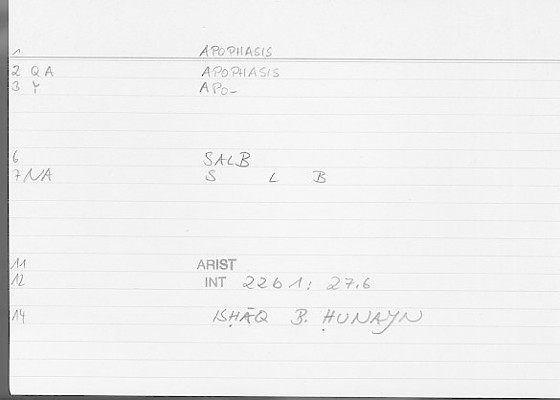 1 APOPHASIS
2 QA APOPHASIS
3 Y APO_
6 SALB
7 NA S L B
11 ARIST
12 INT 22b1: 27.6
14 ISḤĀQ B. ḤUNAYN